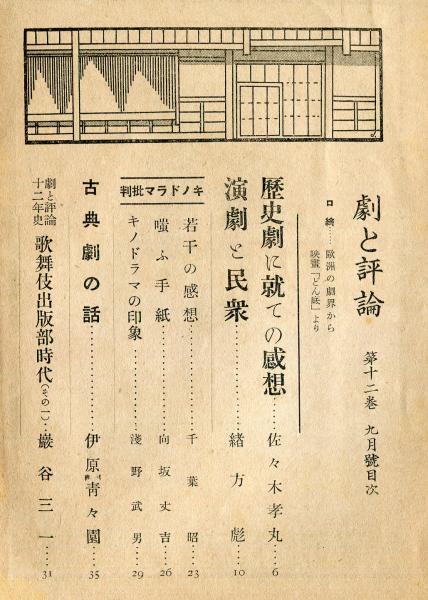 劇と評論 第十二卷 九月號目次
口繪……歐洲の劇界から
映畫「どん底」より
歷史劇に就ての感想……佐々木孝丸……6
演劇と民衆……緖方彪……10
キノドラマ批判
若干の感想……千葉昭……23
嗤ふ手紙……向坂丈吉……26
キノドラマの印象……淺野武男……29
古典劇の話……伊原靑々園……35
劇と評論
十二年史
歌舞伎出版部時代(その一)……巖谷三一……31